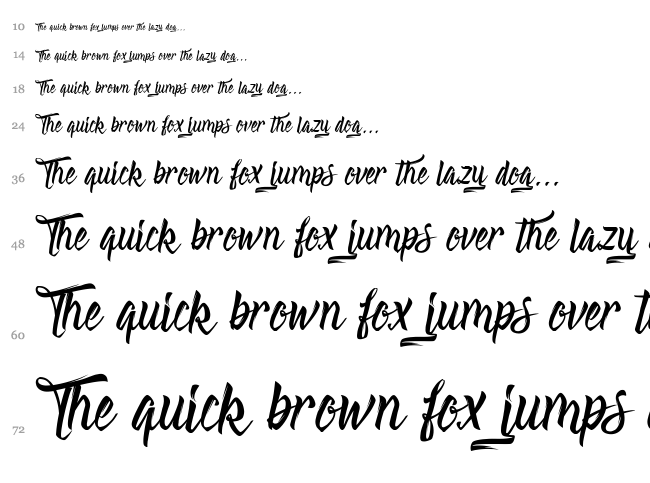 10 The quick brown fox jumps over the lazy dog...
14 The quick brown fox jumps over the lazy dog...
18 The quick brown fox jumps over the lazy dog...
24 The quick brown fox jumps over the lazy dog...
36 The quick brown fox jumps over the lazy dog...
48 The quick brown fox jumps over the lazy
60 The quick brown fox jumps over t
72 The quick brown fox jumps